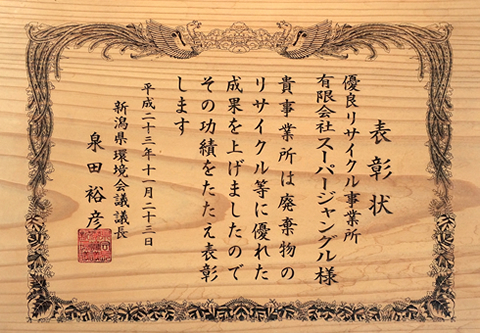 表彰状
優良リサイクル事業所
有限会社スーパージャングル様
貴事業所は廃棄物の
リサイクル等に優れた
成果を上げましたので
その功績をたたえ表彰
します
平成二十三年十一月二十三日
新潟県環境会議議長
泉田裕彦